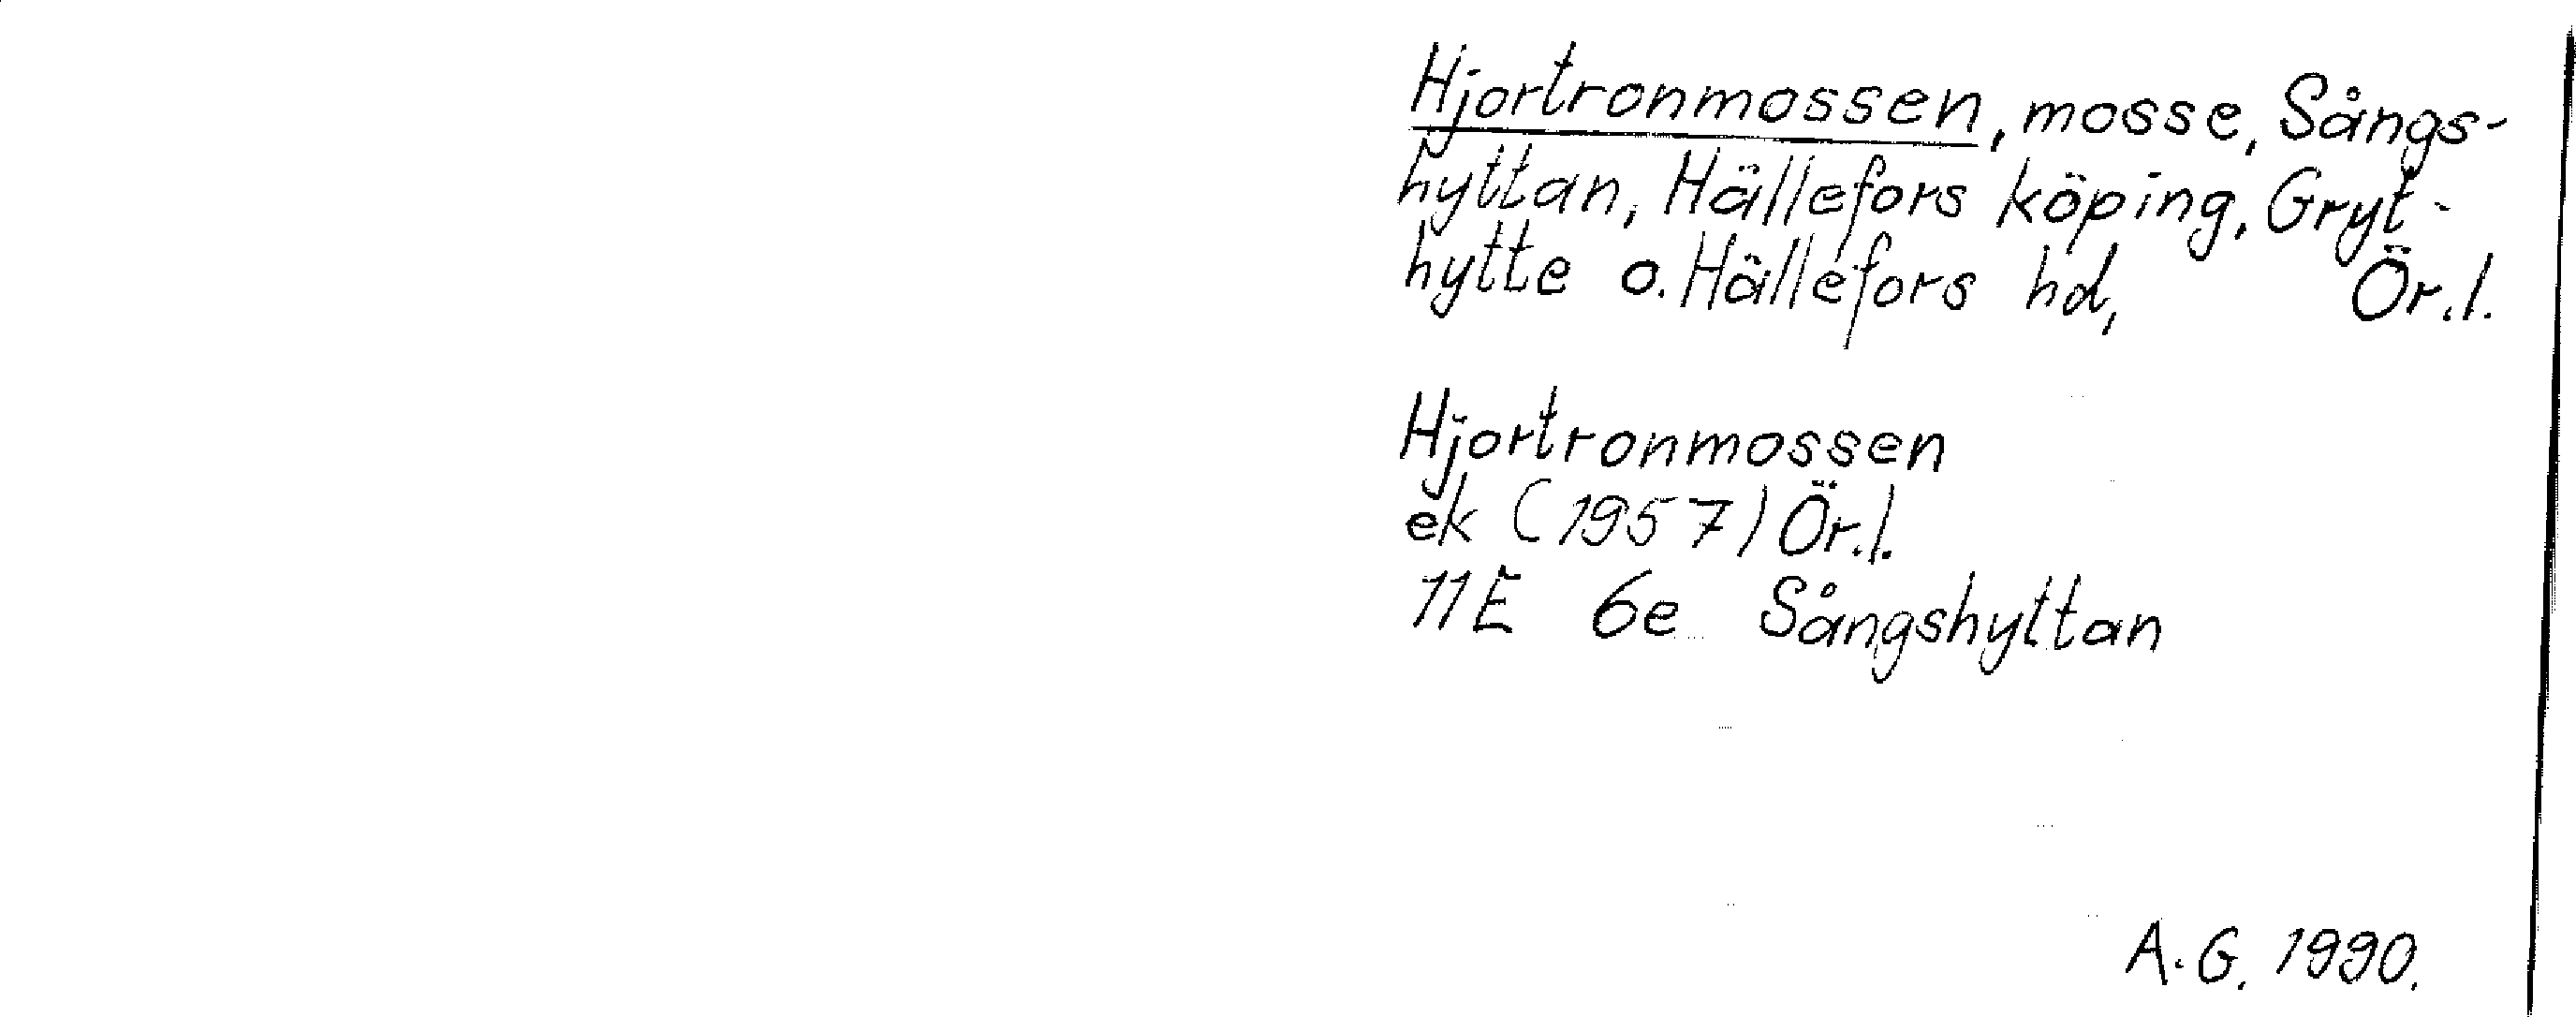 Hjortronmossen, mosse, Sångs-
hyttan, Hällefors köping, Gryt-
hytte o. Hällefors hd, Ör.l.
Hjortronmossen
ek (1957) Ör.l.
11E 6e Sångshyttan
A.G. 1990.